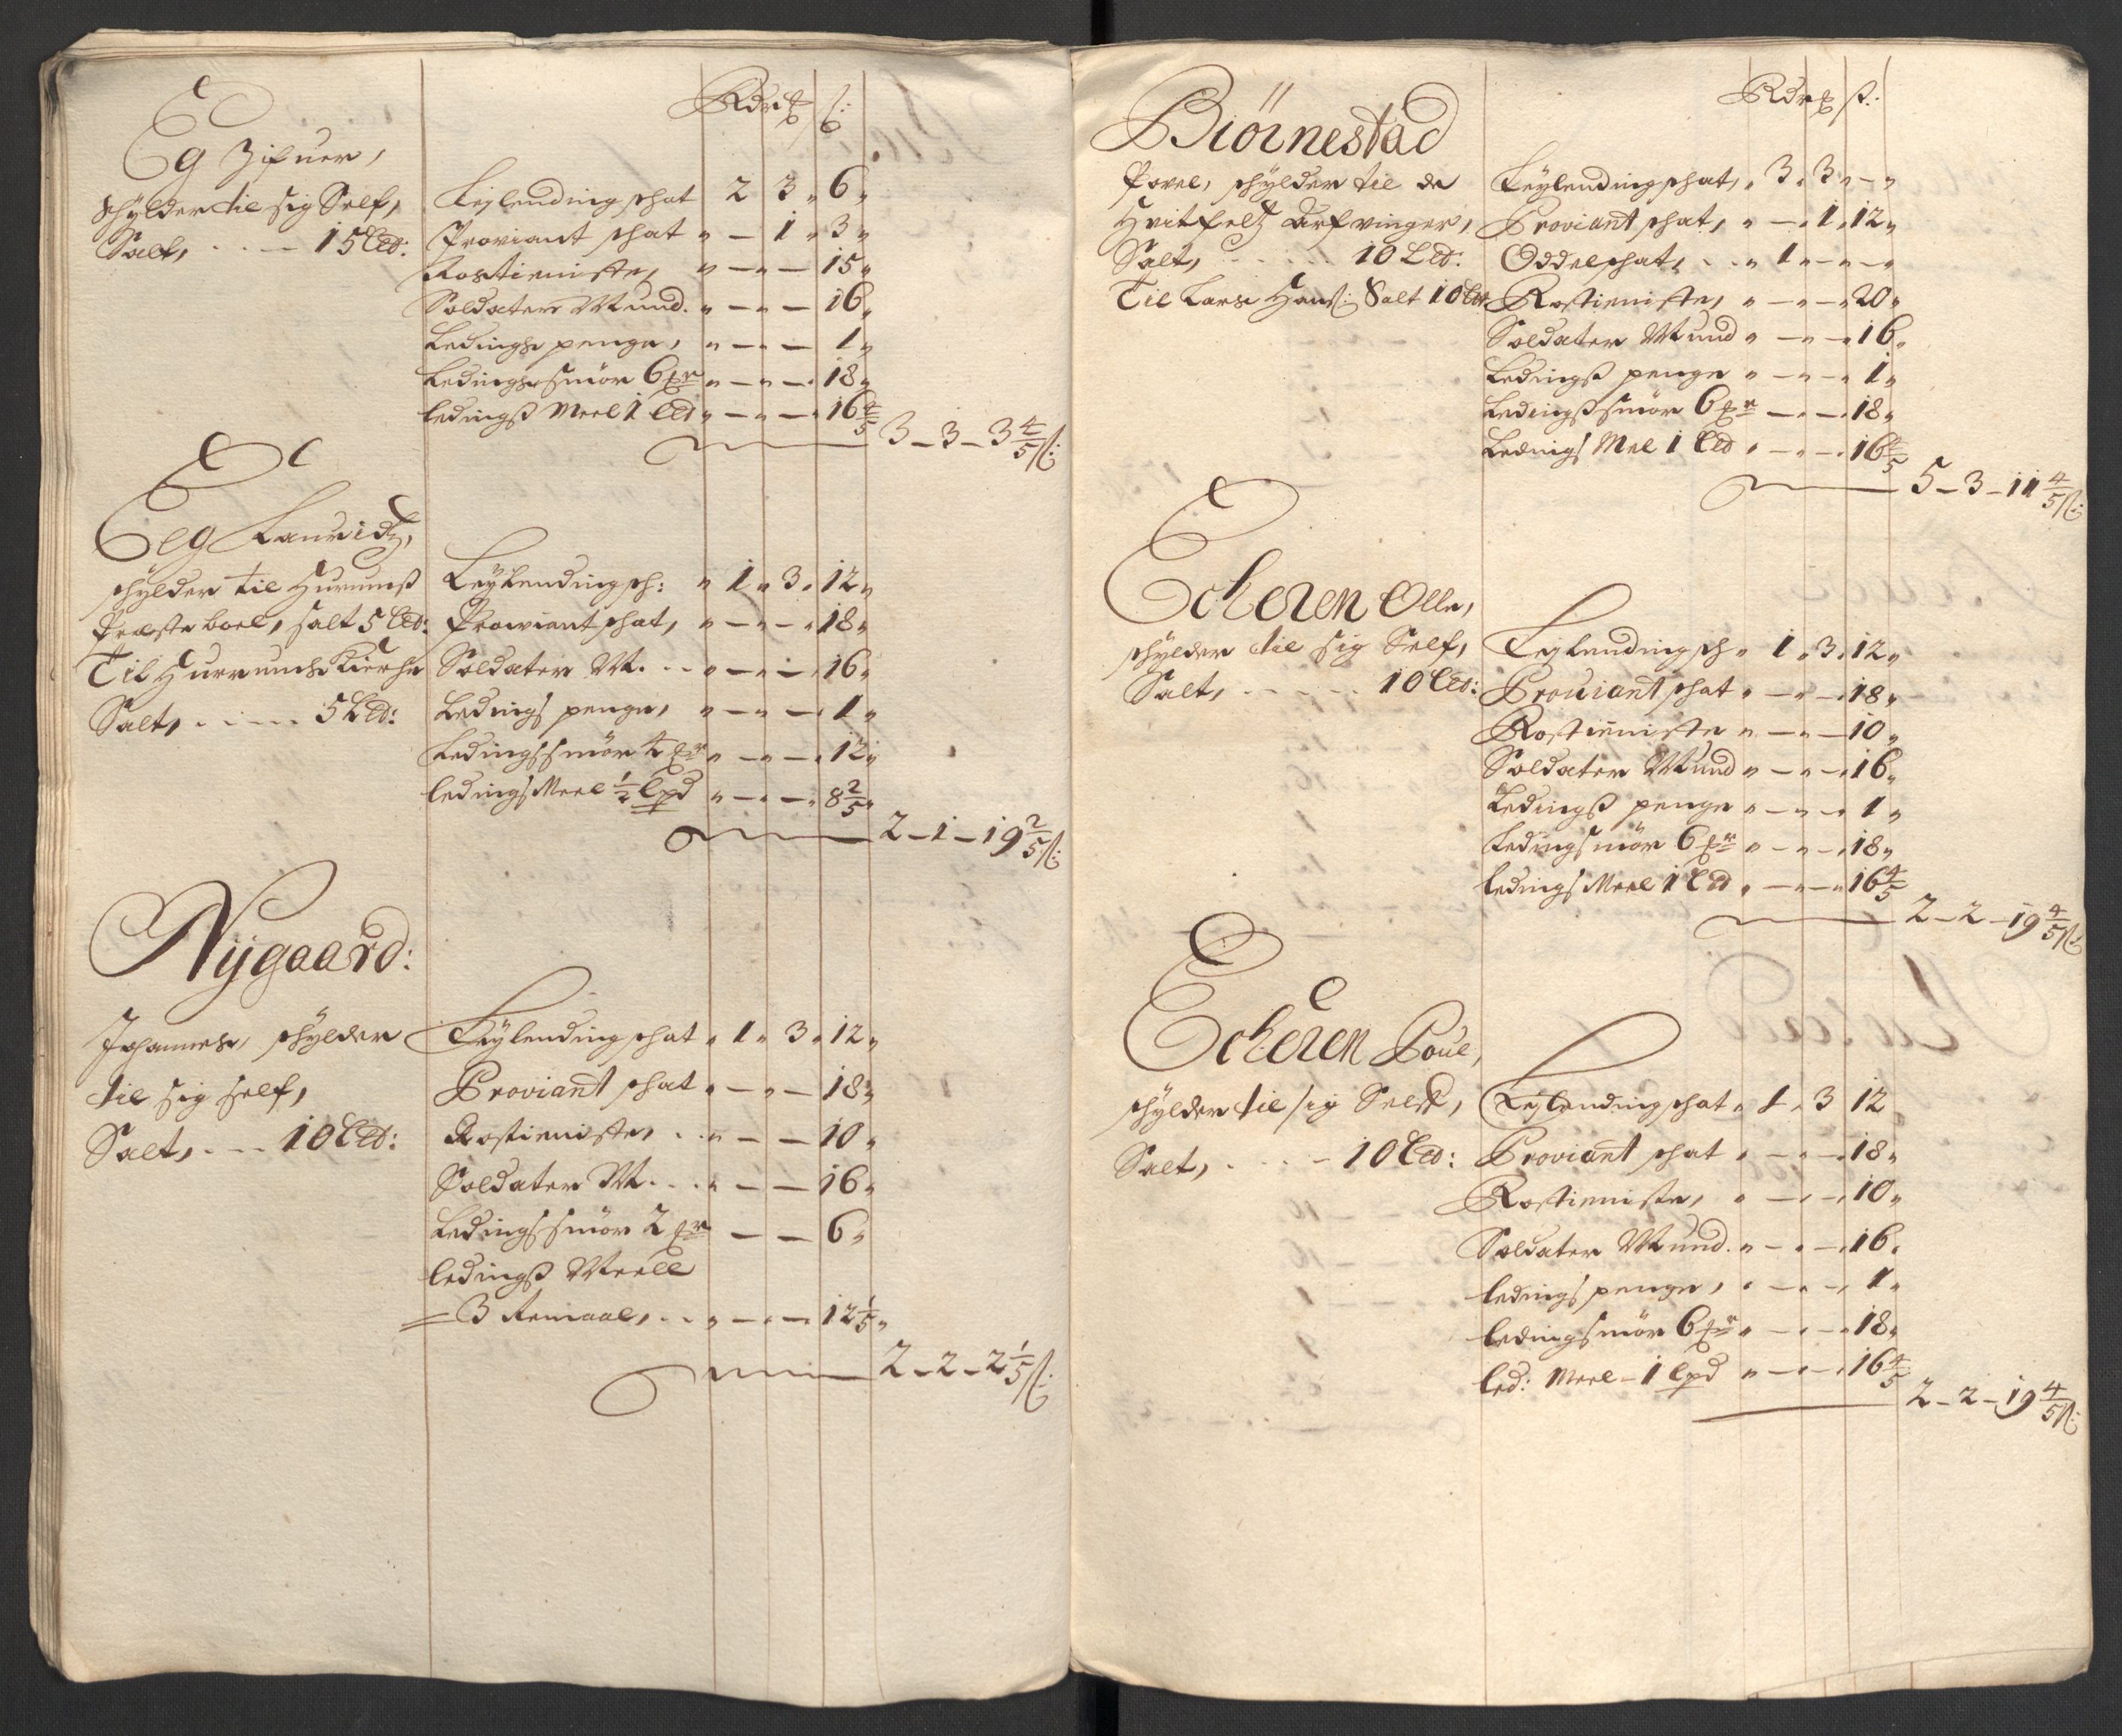 Rdr ꝥ ß:
Eg Zifuer,
schylder til sig Self,
Salt, . . — 15 L℔:
Leylending schat 2 3 „ 6 „
Proviant schat „ — 1 „ 3 „
Rostieniste, „ — „ — 15 „
Soldater Mund. „ — „ — 16 „
Ledings penge, „ — „ — 1 „
Ledings smör 6 pr „ — „ — 18 „
ledingß Meel 1 L℔ „ — „ — 16 4/5
3 – 3 – 3 4/5 ß:
Eeg Lauridtz,
schylder til Hurumß
Præste boel, salt 5 L℔:
Til Hurrumbs Kierche
Salt, . . — 5 L℔:
Leylending sch: „ 1 „ 3 „ 12 „
Prowiant schat, „ — „ — „ 18 „
Soldater M. . . „ — „ — 16 „
Ledings penge, „ — „ — 1 „
Ledings smör 4 pr „ — „ — 12 „
ledings Meel ½ Lpd „ — „ — 8 2/5 „
2 – 1 – 19 2/5 ß:
Nÿgaard:
Johannes, schylder
til sig self,
Salt, . — 10 L℔:
Leylending schat „ 1 „ 3 „ 12 „
Proviant schat „ — „ — 18 „
Rostieniste, . . „ — — 10 „
Soldater M. . . „ — — 16 „
Ledings smör 2 pr — — 6 „
ledingß Meell
= 3 Remaal, . . „ — „ — 12 1/5 „
2 – 2 – 2 1/5 ß:
Rdr ꝥ ß:
Biörnestad
Povel, schylder til de
Hvitfeltz Arfvinger,
Salt, . . . . . 10 L℔:
Til Lars Hanß: Salt 10 L℔
Leylending schat, „ 3 „ 3 „ — „
Proviant schat, „ — „ 1 „ 12 „
Oddelschat, . . „ 1 „ — „ — „
Rostieniste, „ — „ — „ 20 „
Soldater Mund „ — „ — „ 16 „
Ledingß penge „ — „ — „ 1 „
Ledingß smör 6 pr — „ — „ 18 „
Ledings Mel 1 L℔ „ — „ — „ 16 4/5
5 – 3 – 11 4/5 ß:
Eckeren Olle,
schylder til sig Self,
Salt, . . . . . 10 L℔:
Leylending sch „ 1 „ 3 „ 12 „
Prouiant schat „ — „ — „ 18 „
Rostieniste „ — „ — 10 „
Soldater Mund „ — „ — „ 16 „
Ledingß penge „ — „ — „ 1 „
Ledings mör 6 pr „ — „ — „ 18 „
ledings Meel 1 L℔ „ — „ — „ 16 4/5
2 – 2 – 19 4/5 ß:
Eckeren Poul,
schylder til sig Self,
Salt, . . . – 10 L℔:
Leylending schat „ 1 „ 3 12
Proviant schat „ — „ — „ 18 „
Rostieniste, „ — „ — „ 10 „
Soldater Mund. „ — „ — „ 16 „
ledings penge, „ — „ — „ 1 „
ledings mör 6 pr „ — „ — „ 18 „
led: Meel – 1 Lpd „ — „ — „ 16 4/5
2 – 2 – 19 4/5 ß: